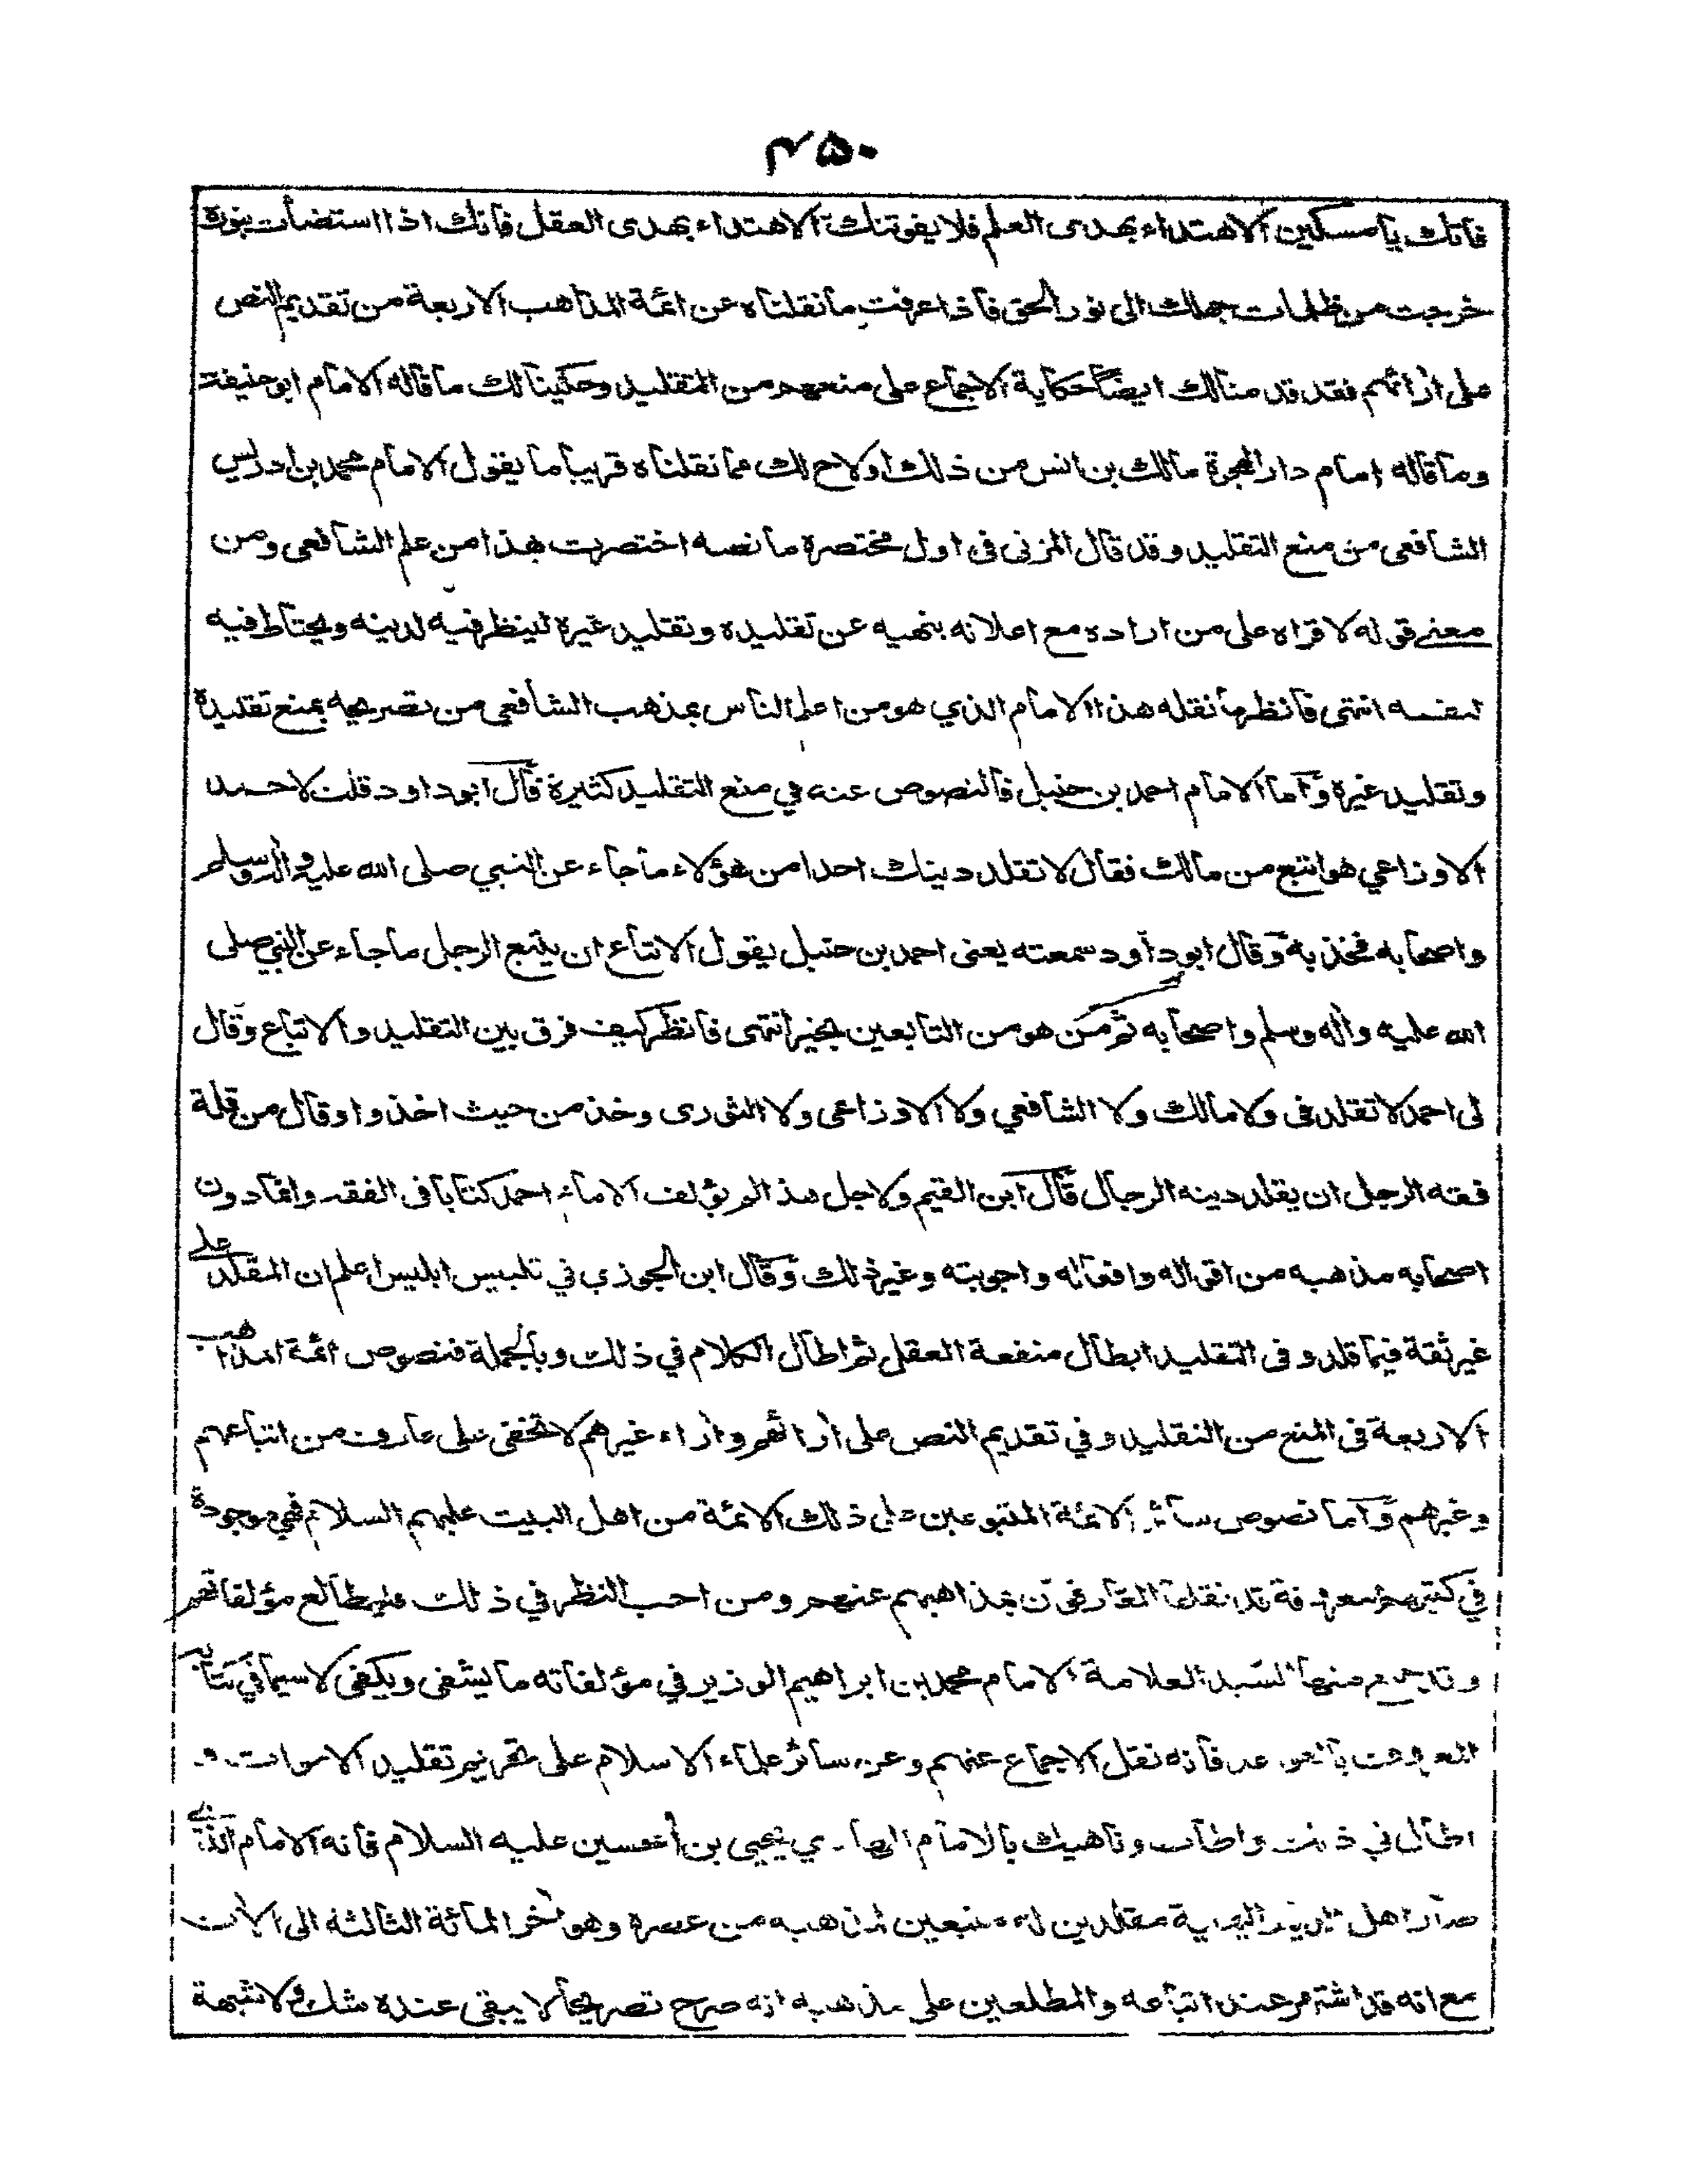 ۴۵۰
فاتك يا مسكين الاهتداء بهدى العلم فلا يفوتنك الاهتداء بهدى العقل فانك اذا استضأت بنوره
خرجت من ظلمات جهلك الى نور الحق فاذا عرفت ما نقلناه عن ائمة المذاهب الاربعة من تقديم النص
على ارائهم فقد قدمنا لك ايضا حكاية الاجماع على منعهم من التقليد وحكينا لك ما قاله الامام ابو حنيفة
وما قاله امام دار الهجرة مالك بن انس من ذلك ولاح لك مما نقلناه قريبا ما يقول الامام محمد بن ادريس
الشافعي من منع التقليد وقد قال المزني في اول مختصره ما نصه اختصرت هذا من علم الشافعي ومن
معنى قوله لاقراه على من اراده مع اعلانه بنهيه عن تقليده وتقليد غيره لينظر فيه لدينه ويحتاط فيه
لنفسه انتهى فانظر ما نقله هذا الامام الذي هو من اعلم الناس بمذهب الشافعي من تصريحه بمنع تقليده
وتقليد غيره وأما الامام احمد بن حنبل فالنصوص عنه في منع التقليد كثيرة قال ابو داود قلت لاحمد
الاوزاعي هو اتبع من مالك فقال لا تقلد دينك احدا من هؤلاء ما جاء عن النبي صلى الله عليه واله وسلم
واصحابه فخذ به وقال ابو داود سمعته يعنى احمد بن حنبل يقول الاتباع ان يتبع الرجل ما جاء عن النبي صلى
الله عليه واله وسلم واصحابه ثم من هو من التابعين بخير انتهى فانظر كيف فرق بين التقليد والاتباع وقال
لى احمد لا تقلدنى ولا مالك ولا الشافعي ولا الاوزاعى ولا الثورى وخذ من حيث اخذوا وقال من قلة
فقه الرجل ان يقلد دينه الرجال قال ابن القيم ولاجل هذا لم يؤلف الامام احمد كتابا في الفقه وانما دون
اصحابه مذهبه من اقواله وافعاله واجوبته وغير ذلك وقال ابن الجوزي في تلبيس ابليس اعلم ان المقلد على
غير ثقة فيما قلد وفى التقليد ابطال منفعة العقل ثم اطال الكلام في ذلك وبالجملة فنصوص ائمة المذاهب
الاربعة في المنع من التقليد وفي تقديم النص على ارائهم واراء غيرهم لا تخفى على عارف من اتباعهم
وغيرهم وأما نصوص سائر الائمة المتبوعين على ذلك الائمة من اهل البيت عليهم السلام فهي موجودة
في كتبهم معروفة قد نقلها العارفون بمذاهبهم عنهم ومن احب النظر في ذلك فليطالع مؤلفاتهم
وقد جمع منها السيد العلامة الامام محمد بن ابراهيم الوزير في مؤلفاته ما يشفى ويكفى لاسيما في كتابه
المعروف بالقواعد فانه نقل الاجماع عنهم وعن سائر علماء الاسلام على تحريم تقليد الاموات و
اطال في ذلك واطاب وناهيك بالامام الهادي يحيى بن الحسين عليه السلام فانه الامام الذي
صار اهل الديار اليمنية مقلدين له متبعين لمذهبه من عصره وهو اخر المائة الثالثة الى الان
مع انه قد اشتهر عند اتباعه والمطلعين على مذهبه انه صرح تصريحا لا يبقى عنده شك ولا شبهة